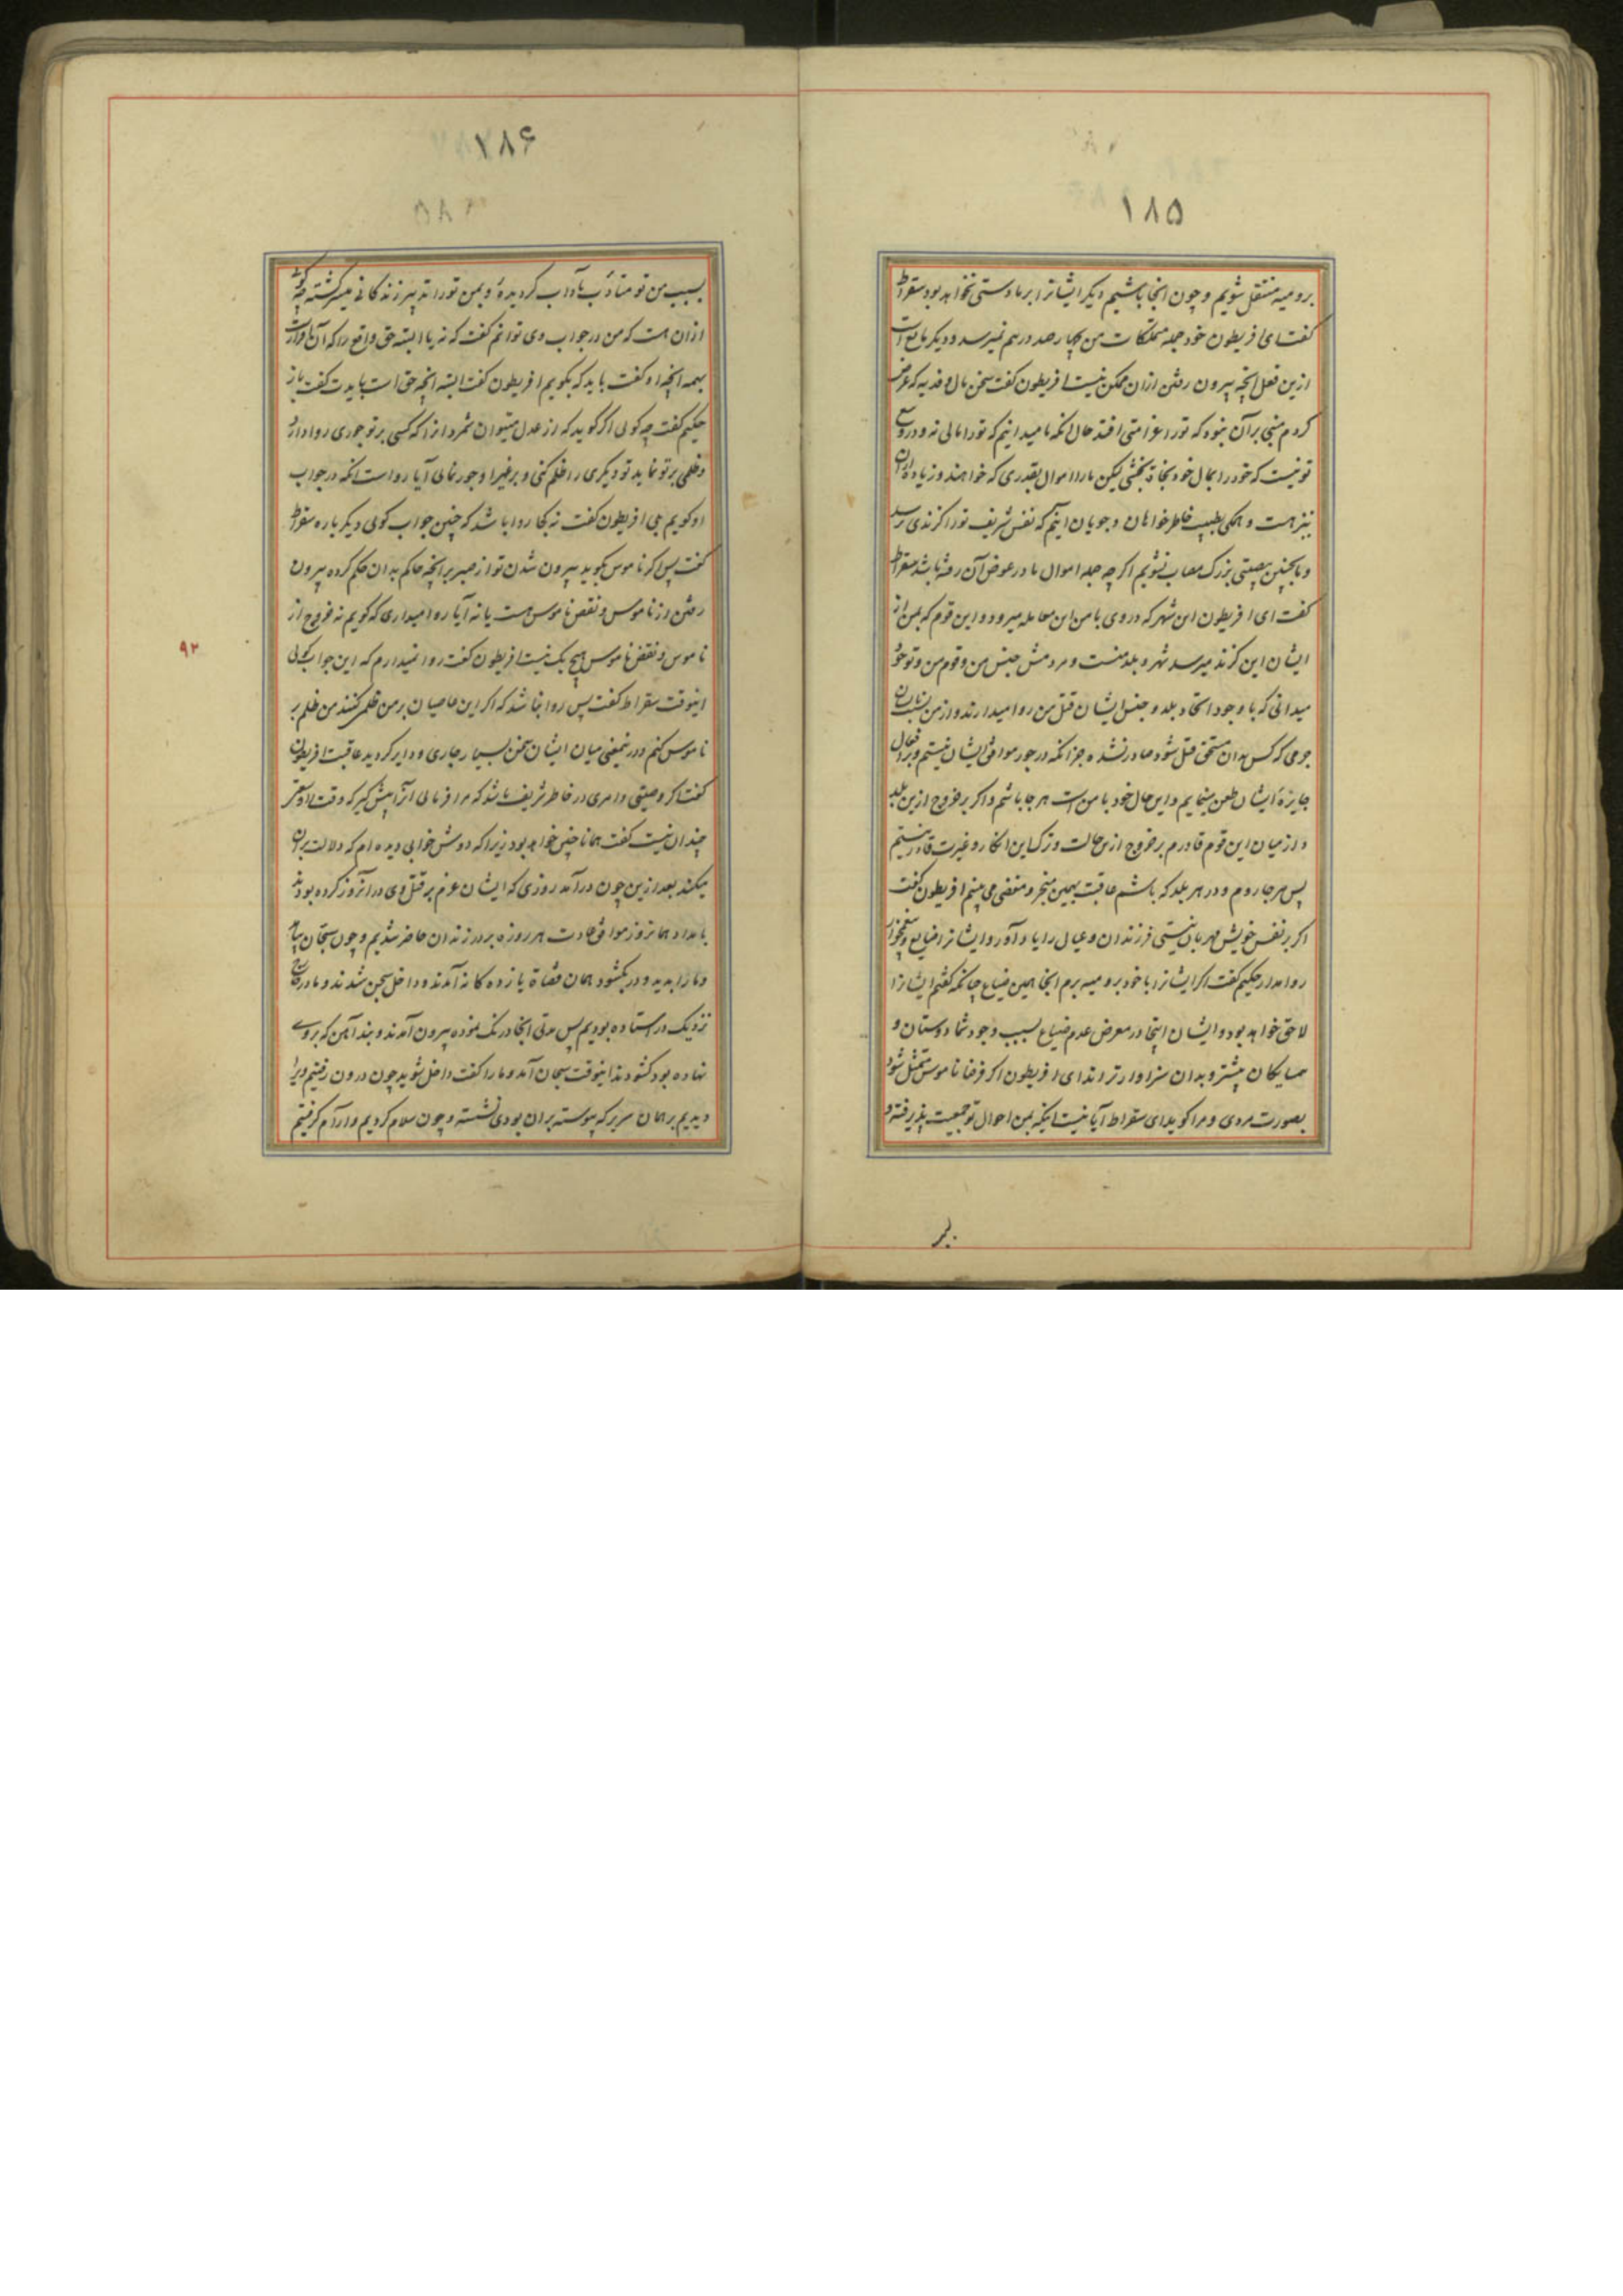 ۱۸۵
برومیه منتقل شویم و چون انجا باشیم دیگر ایشانرا بر ما دستی نخواهد بود سقراط
گفت ای افریطون خود جمله متملکات من بچهار صد درهم نمیرسد و دیگر مانع است
ازین فعل انچه بیرون رفتن ازان ممکن نیست افریطون گفت سخن مال و فدیه که عرض
کردم مبنی بر آن نبوه که تو را غرامتی افتد حال انکه ما میدانیم که تو را مالی نه و در وسع
تو نیست که خود را بمال خود نجاة بخشی لیکن ما را اموال بقدری که خواهند و زیاده از آن
نیز هست و همگی بطیب خاطر خواهان و جویان اینیم که نفس شریف تو را گزندی نرسد
و بچنین مصیبتی بزرگ مصاب نشویم اگر چه جمله اموال ما در عوض آن رفته باشد سقراط
گفت ای افریطون این شهر که در وی با من این معامله میرود و این قوم که بمن از
ایشان این گزند میرسد شهر و بلد منست و مردمش جنس من و قوم من و تو خود
میدانی که با وجود اتحاد بلد و جنس ایشان قتل من روا میدارند و از من بنسبت ایشان
جرمی که کس بدان مستحق قتل شود صادر نشده جز انکه در جور موافق ایشان نیستم و بر افعال
جایزهٔ ایشان طعن مینمایم و این حال خود با من است هر جا باشم و اگر بر خروج ازین بلد
و از میان این قوم قادرم بر خروج ازین حالت و ترک این انکار و غیرت قادر نیستم
پس هر جا روم و در هر بلد که باشم عاقبت بهمین منجر و مفضی می بینم افریطون گفت
اگر بر نفس خویش مهربان نیستی فرزندان و عیال را یاد آور و ایشانرا ضایع و بیغمخوار
روا مدار حکیم گفت اگر ایشانرا با خود برومیه برم انجا همین ضیاع چنانکه گفتم ایشانرا
لاحق خواهد بود و ایشان اینجا در معرض عدم ضیاع بسبب وجود شما دوستان و
همسایگان بیشتر و بدان سزاوارترند ای افریطون اگر فرضا ناموس متمثل شود
بصورت مردی و مرا گوید ای سقراط آیا نیست اینکه بمن احوال تو جمعیت پذیرفته و
۱۸۶
بسبب من تو متأدب بآداب گردیدهٔ و بمن تو را تدبیر زندگانی میسر گشته چه
ازان هست که من در جواب وی توانم گفت که نه یا البته حق واقع را که آن اقرار است
بهمه انچه او گفت باید که بگویم افریطون گفت البته انچه حق است بایدت گفت باز
حکیم گفت چه گوئی اگر گوید که از عدل میتوان شمرد انرا که کسی بر تو جوری روا دارد
و ظلمی بر تو نماید تو دیگری را ظلم کنی و بر غیر او جور نمائی آیا رواست انکه در جواب
او گویم بلی افریطون گفت نه کجا روا باشد که چنین جواب گوئی دیگر باره سقراط
گفت پس اگر ناموس بگوید بیرون شدن تو از صبر بر انچه حاکم بدان حکم کرده بیرون
رفتن از ناموس و نقض ناموس هست یا نه آیا روا میداری که گویم نه خروج از
ناموس و نقض ناموس هیچ یک نیست افریطون گفت روا نمیدارم که این جواب گوئی
اینوقت سقراط گفت پس روا نباشد که اگر این قاضیان بر من ظلمی کنند من ظلم بر
ناموس کنم و در نمعنی میان ایشان سخن بسیار جاری و دایر گردید عاقبت افریطون
گفت اگر وصیتی و امری در خاطر شریف باشد که مرا فرمائی انرا پیش گیر که وقت او سفر
چندان نیست گفت همانا چنین خواهد بود زیرا که دوش خوابی دیده ام که دلالت بر آن
میکند بعد ازین چون درآمد روزی که ایشان عزم بر قتل وی در انروز کرده بودند
بامداد همانروز موافق عادت هر روزه بر در زندان حاضر شدیم و چون سجان بیامد
و ما را بدید و در بگشود همان قضاة یازده گانه آمدند و داخل سجن شدند و ما در خارج
نزدیک در استاده بودیم پس مدتی انجا درنک نموده بیرون آمدند و بند آهن که بروی
نهاده بود گشودند اینوقت سجان آمد و ما را گفت داخل شوید چون درون رفتیم ویرا
دیدیم بر همان سریر که پیوسته بر ان بودی نشسته و چون سلام کردیم و آرام گرفتیم
۹۲